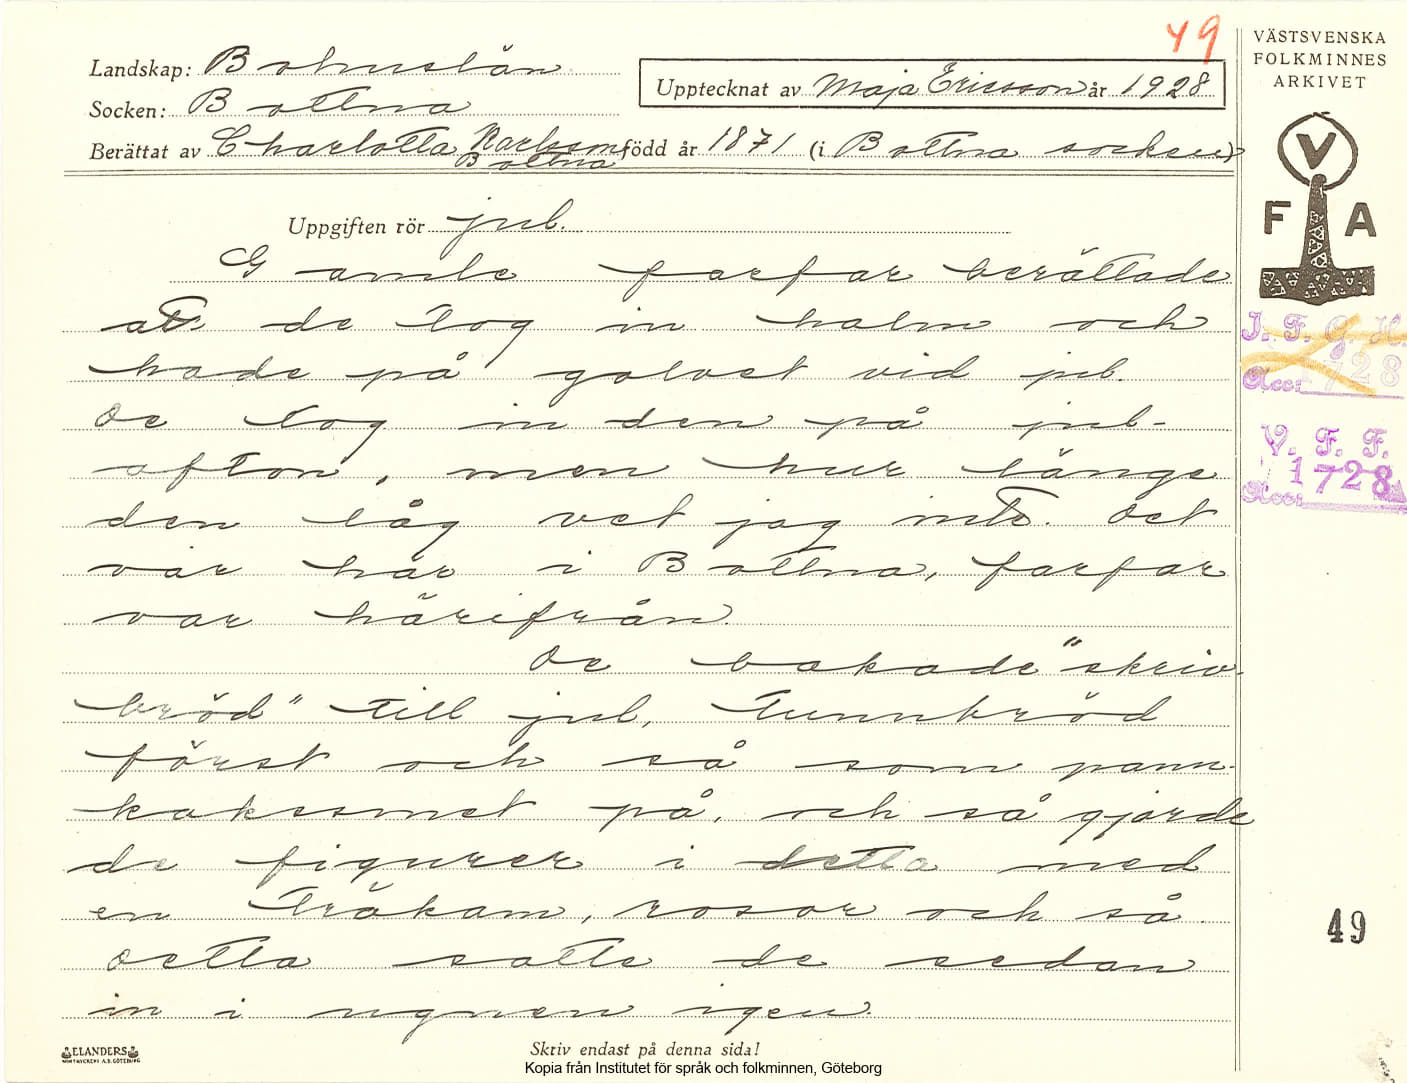 49
VÄSTSVENSKA
FOLKMINNES
ARKIVET
Landskap: Bohuslän
Upptecknat av Maja Ericsson år 1928
Socken: Bottna
Berättat av Charlotta Karlsson född år 1871 (i Bottna socken)
Bottna
V
F A
Uppgiften rör jul.
Gamle farfar berättade
att de tog in halm och
hade på golvet vid jul.
De tog in den på jul-
afton, men hur länge
den låg vet jag inte. Det
var här i Bottna, farfar
var härifrån.
De bakade "skriv-
bröd" till jul, tunnbröd
först och så som pann-
kakssmet på, och så gjorde
de figurer i detta med
en träkam, rosor och så.
Detta satte de sedan
in i ugnen igen.
I. F. G. H.
Acc: 1728
V. F. F.
Acc: 1728
49
ELANDERS
Skriv endast på denna sida!
Kopia från Institutet för språk och folkminnen, Göteborg